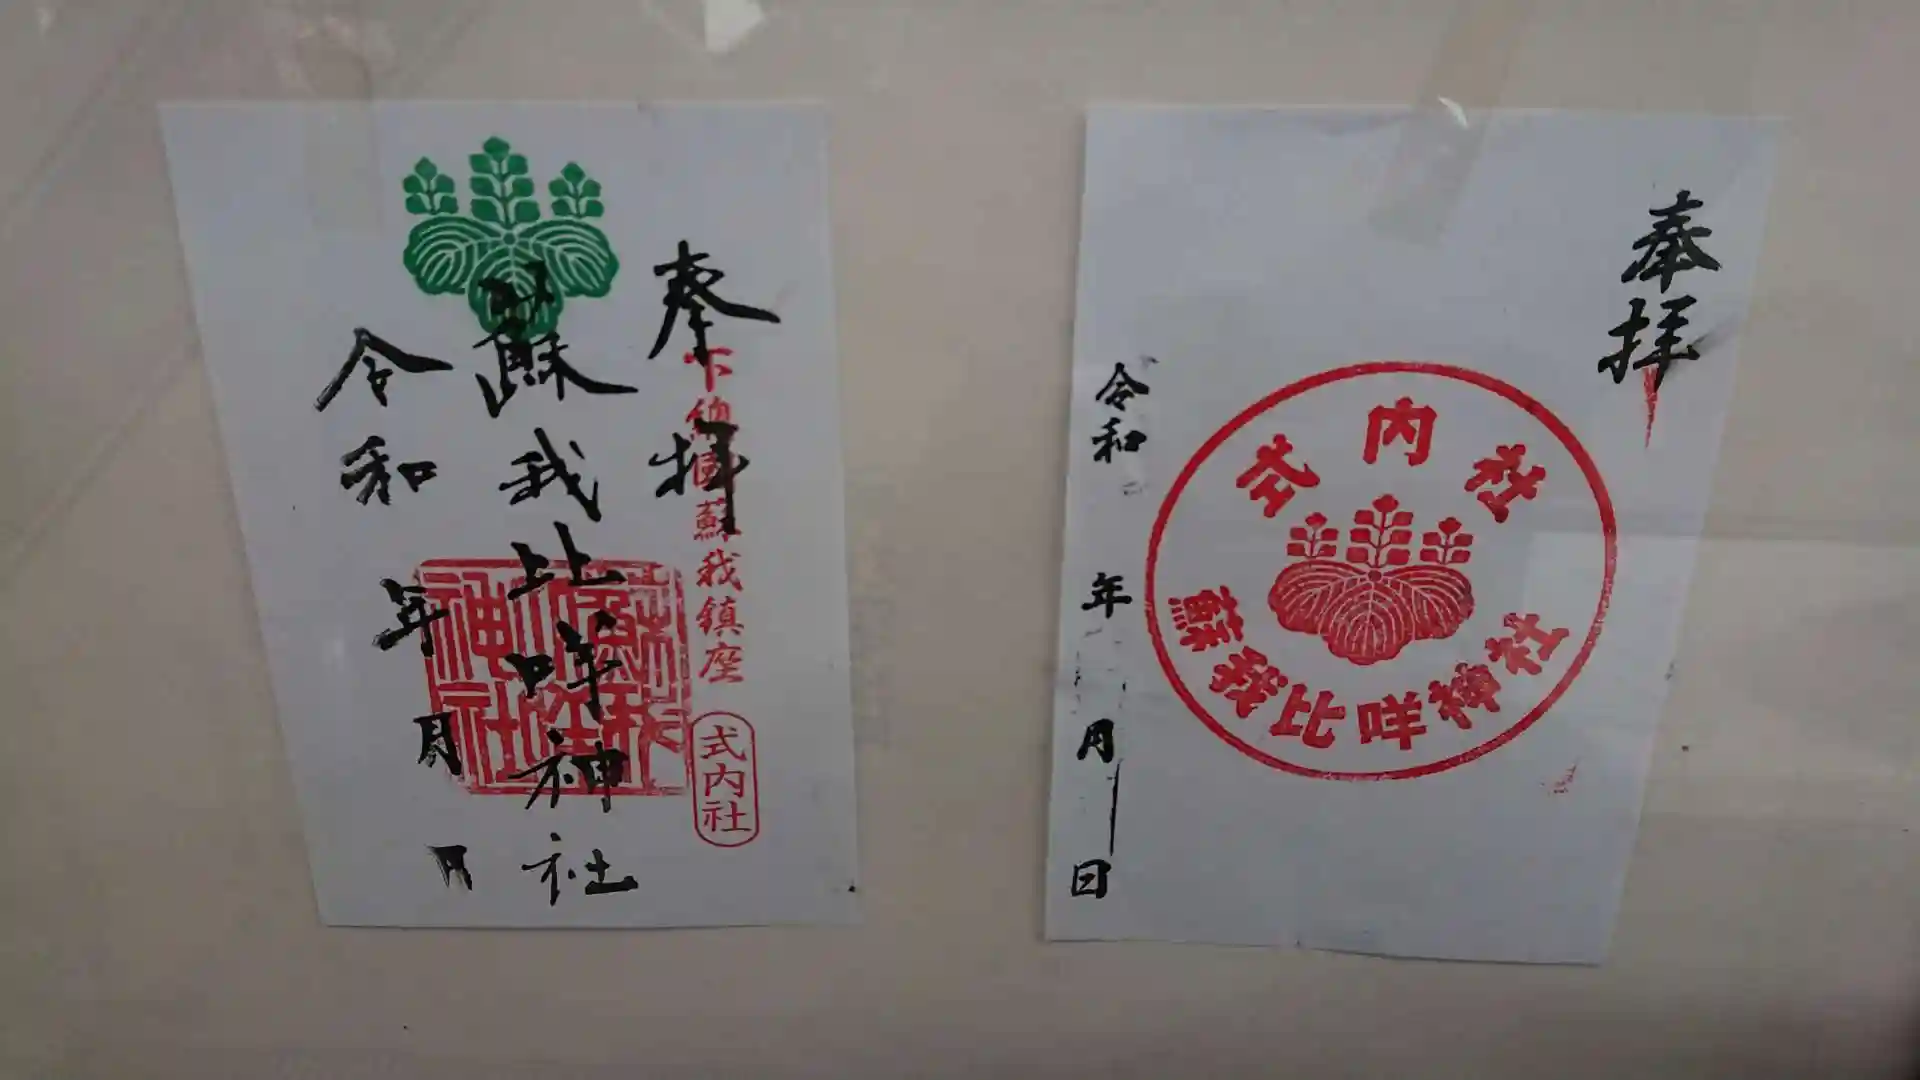 奉拝
下総國蘇我鎮座
式内社
蘇我比咩神社
蘇我比咩神社
令和 年 月 日
奉拝
式内社
蘇我比咩神社
令和 年 月 日